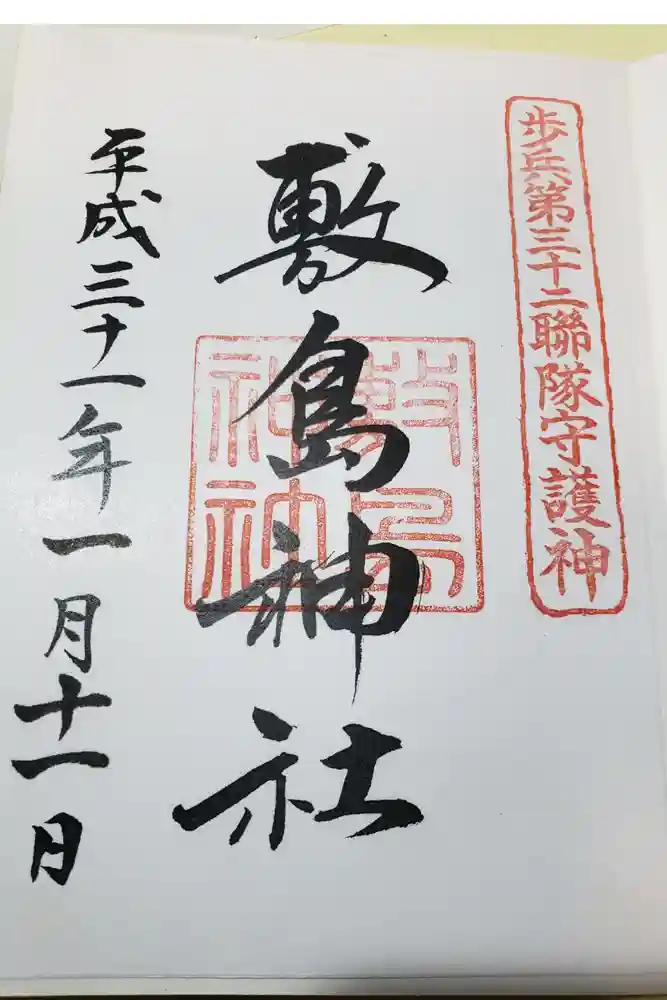 歩兵第三十二聯隊守護神
敷島神社
敷島
神社
平成三十一年一月十一日